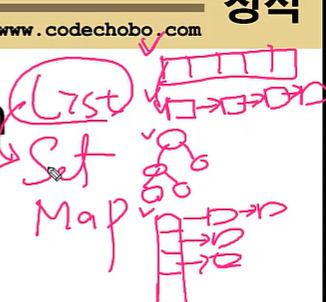 상식
www.codechobo.com
List
Set
Map